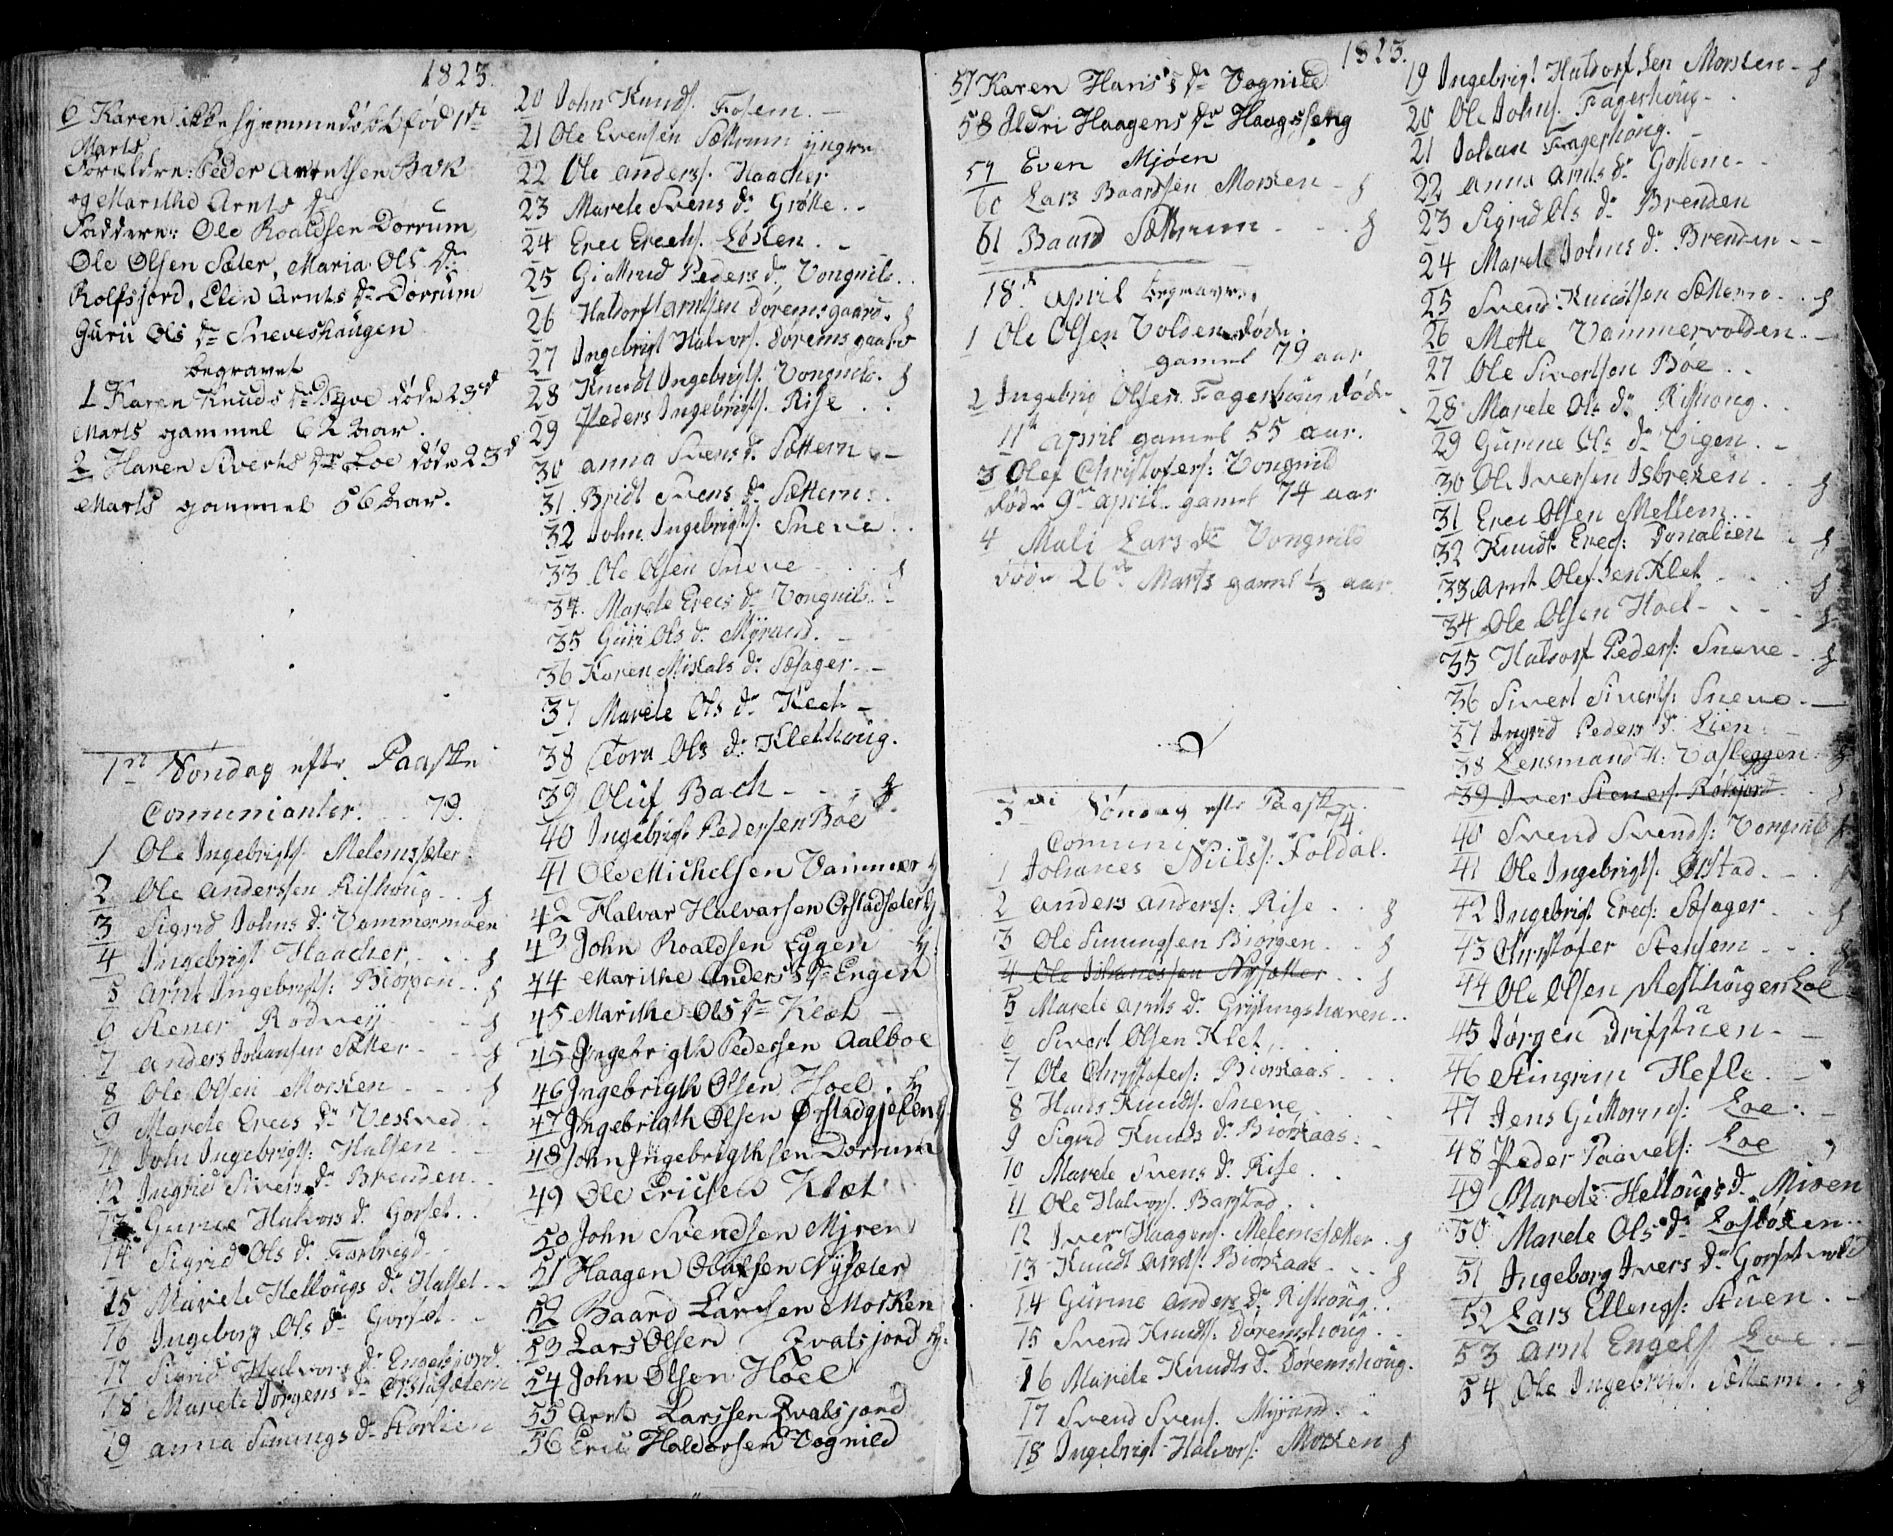 1823.
6 Karen ikke hjemmedøbt fød 1ste
Marts
Forældre: Peder Arntsen Bak
og Marithe Arnts dr
Faddere: Ole Roaldsen Dorrum
Ole Olsen Sæter, Maria Ols dr
Rolfsjord, Elen Arnts dr Dorrum
Guru Ols dr Sneveshaugen
begravet
1 Karen Knuds dr døde 23d
Marts gammel 62 aar.
2 Haren Siverts dr Loe døde 23d
Marts gammel 56 aar.
1ste Søndag efter Paaske
Comunianter. . . 79.
1 Ole Ingebrigts. Melemsæter.
2 Ole Anderssen Rishoug . . §
3 Sigrid Johns dr Vammermoen
4 Ingebrigt Haacher . . . §
5 Arnt Ingebrigts: Biorgen . . §
6 Stener Rodvey . . . §
7 Anders Johansen Sætter . . . §
8 Ole Olsen Morken . . . §
9 Marete Erecs dr Veskved
11 John Ingebrigts: Halsen
12 Ingrid Sivers dr Brenden.
13 Gurue Halvors dr Gorset . .
14 Sigrid Ols dr Farbregd
15 Mariele Hellougs dr Halset . .
16 Ingeborg Ols dr Gorset . .
17 Sigrid Halvors dr Engelsjord.
18 Marele Jorgens dr Ørstadsætern
19 Anna Simings dr Storlien
20 John Knuds. Fosem. —
21 Ole Evensen Sættrum yngre
22 Ole Anderss. Haacher
23 Marele Svens dr Grøtte . .
24 Erec Erechs. Løkken . .
25 Giertrud Peders dr Vongnild. .
26 Haldorf Arntsen Doremsgaard. §
27 Ingebrigt Halvors. Doremsgaard
28 Knudt Ingebrigts. Vongnild. §
29 Peders Ingebrigts. Rise . .
30 Anna Svens dr Sættern . —
31. Bridt Svens dr Sættern: .
32 John Ingebrigts. Sneve . .
33 Ole Olsen Sneve . . . §
34. Marele Erecs dr Vongnild. .
35 Guri Ols dr Myrand. —
36 Karen Mikals dr Sæsager . —
37 Marele Ols dr Klet —
38 Tora Ols dr Kletthoug.
39 Oluf Bach - - - §
40 Ingebrigt Pedersen Bøe
41 Ole Michelsen Vammer §
42 Halvar Halvarsen Orstadsæter §
43 John Roaldsen Eggen §
44 Marithe Anders dr Engen
45 Marithe Ols dr Klæt —
45 Ingebrigth Pedersen Aalboe
46 Ingebrigth Olsen Hoel . §
47 Ingebrigth Olsen Ørstadgjelen §
48 John Ingebrigthsen Dorrum
49 Ole Ericsen Klæt
50 John Svendsen Mjren
51 Haagen Olafsen Nysæter
52 Baard Larssen Morken
53 Lars Olsen Qvalsjord §.
54 John Olsen Hoel
55 Arnt Larssen Qvalsjord
56 Eric Haldorsen Vognild
1823.
57 Karen Hans's dr Vognild
58 Ildri Haagens dr Haugsseng
59 Even Mjøen
60 Lars Baardsen Morken - §
61 Baard Sættrum - - - §
18de April begravne
1 Ole Olsen Volden døde.
gamel 79 aar
2 Ingebrig Olsen Fagerhoug døde
11te April gamel 55 aar.
3 Olef Christofers: Vongnild
døde 9de April gamel 74 aar
4 Mali Lars dr Vongnild
døde 26de Marts gamel 1/3 aar.
3die Søndag efter Paaske.
Comuni 74.
1 Johanes Niels: Foldal.
2 Anders Anderss: Rise . . §
3 Ole Simingsen Biorgen . . §
4 Ole Johanessen Nysætter . . §
5 Marele Arnts dr Grytingshaven . .
6 Sivert Olsen Klet, . .
7 Ole Christofers: Biorkaas . . .
8 Hans Knudts. Sneve
9 Sigrid Knuds dr Biorkaas: .
10 Marele Svens dr Rise . .
11 Ole Halvors. Barstad . .
12 Iver Haagens. Melemsætter . §
13 Knudt Arnts: Biorkaas . . . §
14 Gurine Anders dr Rishoug . .
15 Svend Knudts: Doremshoug . .
16 Marele Knudts dr Doremshoug.
17 Svend Svens. Myrand. .
18 Ingebrigt Halvors: Morken §
19 Ingebrigt Haldorfsen Morsken - §
20 Ole Johns. Fagerhoug - .
21 Johan Fagerhoug. -
22 Anna Arnts dr Gottem - .
23 Sigrid Ols dr Brenden
24 Marele Johns dr Brenden - -
25 Svend: Knudtsen Sættern . . §
26 Mette Vammervolden. . -
27 Ole Sivertsen Bøe . .
28 Marele Ols dr Rishoug .
29 Gurine Ols dr Vigen. . -
30 Ole Iversen Isbreken . . §
31 Erec Olsen Mellem . . .
32 Knudt Erecs: Donalien . §
33 Arnt Olefsen Klet . . . §
34 Ole Olsen Hoel - . . - §.
35 Haldorf Peders: Sneve - . §
36 Sivert Siverts: Sneve . —
37 Ingrid Peders dr Lien: -
38 Lensmand H: Vasleggen . §
39 Iver Steners: Rotsjord . . §
40 Svend Svends: Vongnild §
41 Ole Ingebrigts. Ørstad . . . §
42 Ingebrigt Erecs: Sæsager . . §
43 Christofer Stensem . . . §
44 Ole Olsen Resthougen Loe
45 Jørgen Drifstuen -
46 Stingrim Hefle . - .
47 Jens Guttorms: Loe. -
48 Peder Paavels: Loe
49 Marele Hellougs dr Mioen
50. Marele Ols dr Løsboken . .
51 Ingeborg Ivers dr Gorsetvold
52 Lars Ellengs: Stuen . —
53 Arnt Engels. Loe . . —
54 Ole Ingebrigts. Sættern . . §